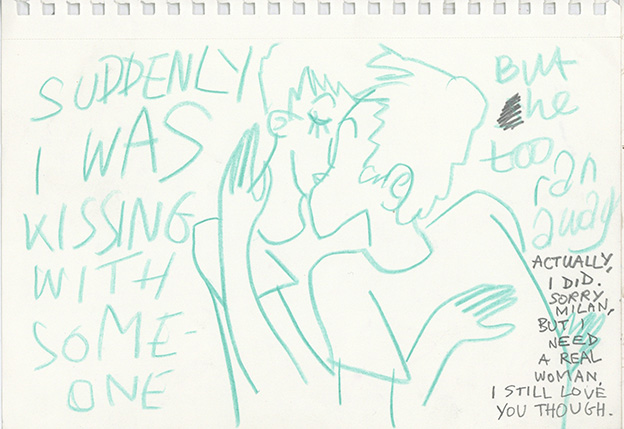 SUDDENLY
I WAS
KISSING
WITH
SOME-
ONE
BUt
he
too
ran
away
ACTUALLY,
I DID.
SORRY,
MILAN,
BUT I
NEED
A REAL
WOMAN.
I STILL LOVE
YOU THOUGH.